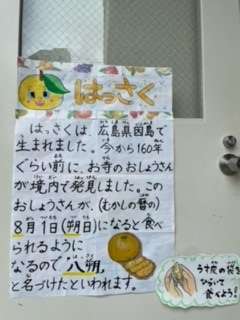 はっさく
はっさくは、広島県因島で
生まれました。今から160年
ぐらい前に、お寺のおしょうさん
が境内で発見しました。この
おしょうさんが、(むかしの暦の)
8月1日(朔日)になると食べ
られるように
なるので「八朔」
と名づけたといわれます。
うす皮の袋を
ひらいて
食べよう!